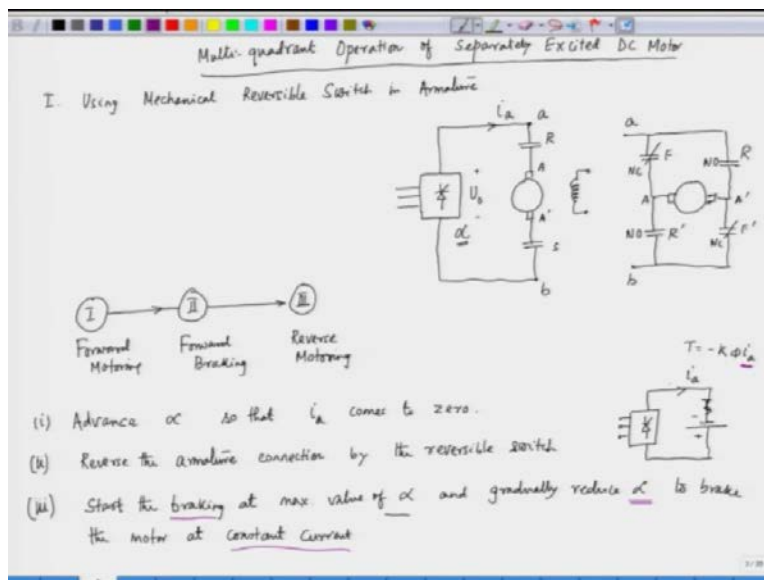 Multi-quadrant Operation of Separately Excited DC Motor
I. Using Mechanical Reversible Switch in Armature
ia a
R
A
U0
+
-
α
A'
S
b
a
F
NC
NO R
A
A'
NO R'
NC F'
b
I II III
Forward Motoring
Forward Braking
Reverse Motoring
T = -Kφia
ia
-
+
(i) Advance α so that ia comes to zero.
(ii) Reverse the armature connection by the reversible switch
(iii) Start the braking at max. value of α and gradually reduce α to brake
the motor at constant current